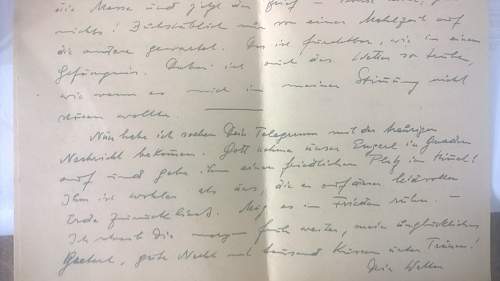 die Messe und jetzt das
nichts! Buchstäblich nur von einer Mahlzeit auf
die andere gewartet. Das ist furchtbar, wie in einem
Gefängnis. Dabei ist auch das Wetter so trübe,
wie wenn es mich in meiner Stimmung nicht
stören wollte.
Nun habe ich soeben Dein Telegramm mit der traurigen
Nachricht bekommen. Gott nehme unser Engerl in Gnaden
auf und gebe ihm einen friedlichen Platz im Himmel!
Ihm ist wohler als uns, die es auf dieser leidvollen
Erde zurückliess. Mög es in Frieden ruhen. —
Ich schreib Dir morgen früh weiter, mein unglückliches
gute Nacht und tausend Küsse unter Tränen!
Dein